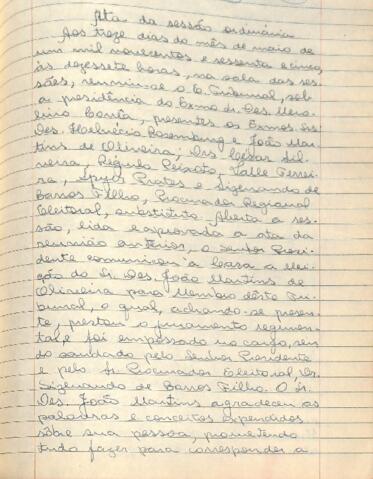 Ata da sessão ordinária
Aos treze dias do mês de maio de
um mil novecentos e sessenta e cinco,
às dezessete horas, na sala das ses-
sões, reuniu-se o E. Tribunal, sob
a presidência do Exmo Sr. Des. Mero-
lino Corrêa, presentes os Exmos. Srs.
Des. Helvécio Rosenburg e João Mar-
tins de Oliveira; Drs. Cesar Sil-
veira, Régulo Peixoto, Valle Ferrei-
ra, Prates e Sizenando de
Barros Filho, Procurador Regional
Eleitoral, substituto. Aberta a ses-
são, lida e aprovada a ata da
reunião anterior, o Senhor Presi-
dente comunicou à Casa a elei-
ção do Sr. Des. João Martins de
Oliveira para Membro dêste Tri-
bunal, o qual, achando-se presen-
te, prestou o juramento regimen-
tal e foi empossado no cargo, sen-
do saudado pelo Senhor Presidente
e pelo Sr. Procurador Eleitoral, Dr.
Sizenando de Barros Filho. O Sr.
Des. João Martins agradeceu as
palavras e conceitos expendidos
sôbre sua pessoa, prometendo
tudo fazer para corresponder à